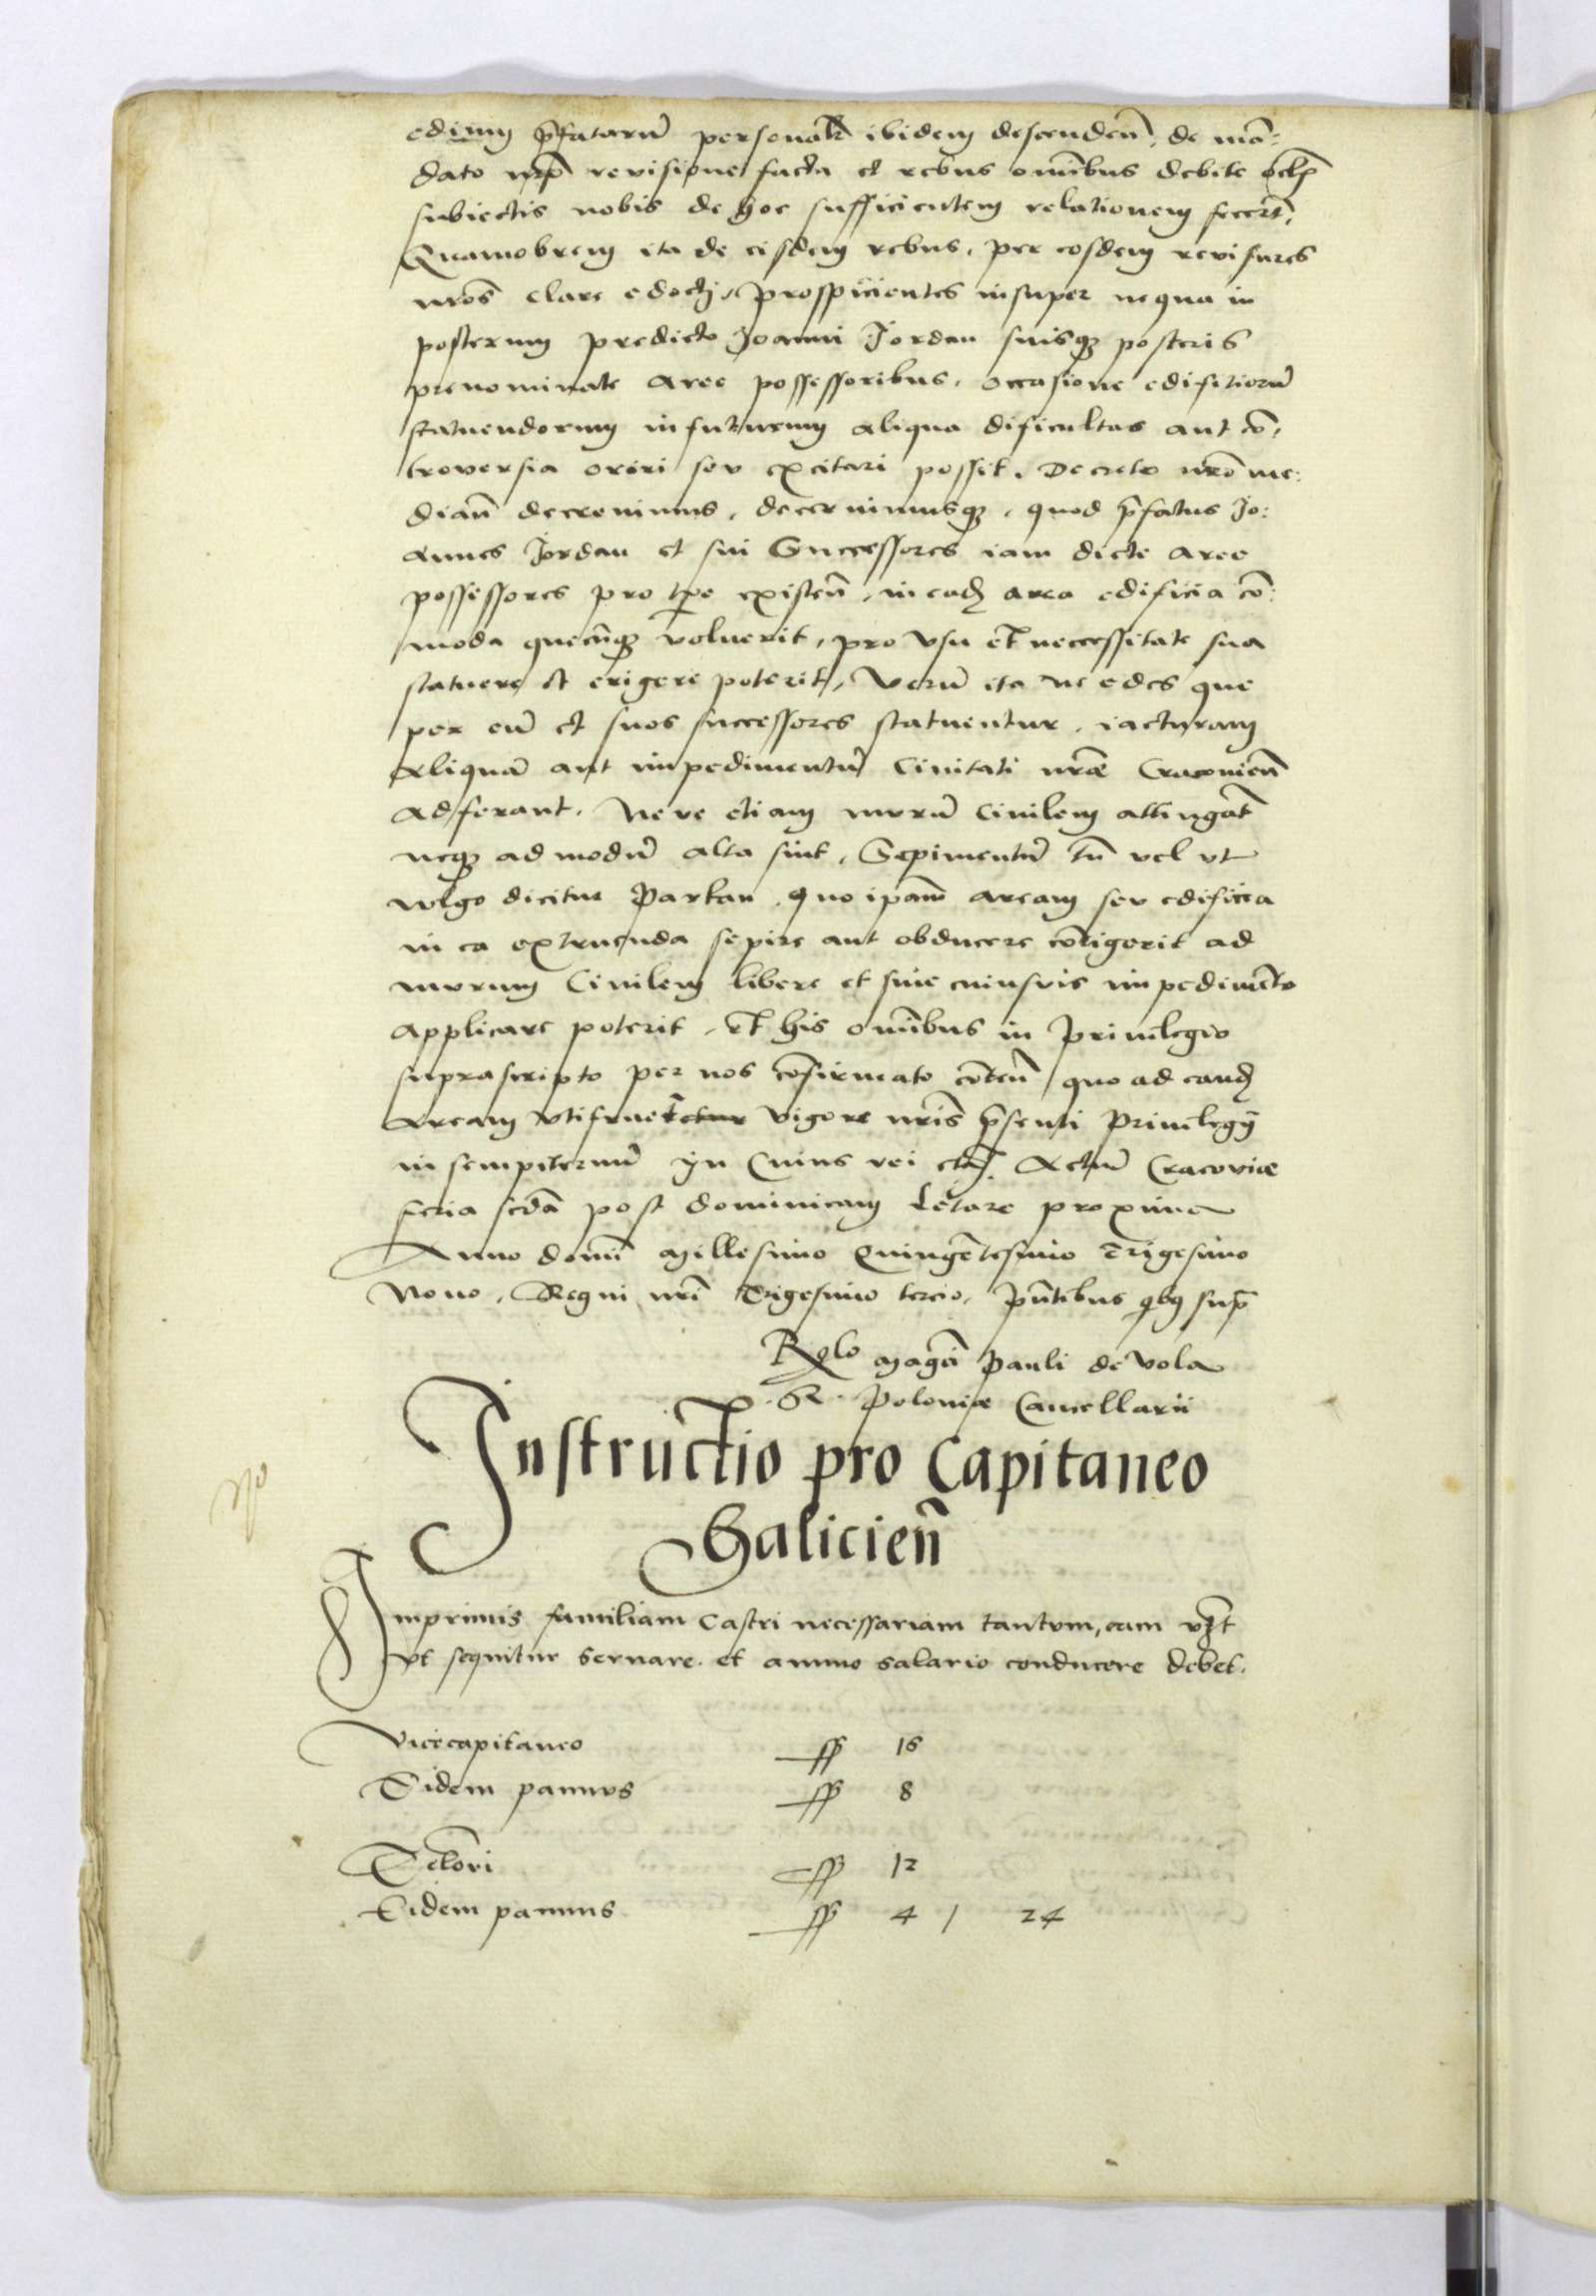 edium p̄fatarū personarꝝ ibidem descendeñ, de mā:
dato nr̄o revisione facta et rebus om̄ibus debite
subiectis nobis de hoc sufficientem relationem fecert̄,
Quamobrem ita de eisdem rebus, per eosdem revisores
nr̄os clare edocti, prospicientes insuper ne qua in
posterum predicto Joanni Jordan suisqꝫ posteris
prenominate aree possessoribus, occasione edifitiorū
statuendorum in futurum aliqua dificultas aut cō,
troversia oriri seu excitari possit. Decreto nr̄o me:
diañ decrevimus, decernimusqꝫ, quod p̄fatus Jo:
annes Jordan et sui Successores iam dicte aree
possessores pro tp̄e existeñ, in eadꝫ area edificia cō:
moda quecūqꝫ voluerit, pro vsu et neccessitate sua
statuere et erigere poterit, Verū ita ne edes que
per eū et suos successores statuentur, iacturam
aliquā aut impedimentū Civitati nr̄ae Cracovieñ
adferant. Neve etiam murū Civilem attingat̄
neqꝫ admodū alta sint, Sepimentū tn̄ vel vt
wlgo dicitur Parkan, quo ip̄am aream seu edificia
in ea extruenda sepire aut obducere cōtigerit ad
murum Civilem libere et sine cuiusvis impedimēto
applicare poterit, Et his om̄ibus in privilegio
suprascripto per nos cōfirmato cōteñ, quo ad eandꝫ
aream vtifruet̄ vigore nr̄is p̄senti Privilegÿ
in sempiternū Jn Cuius rei Actū Cracoviae
feria sc̄da post dominicam Letare proxima
Anno domī Millesimo Quingētesimo Trigesimo
Nono, Regni nrī Trigesimo tercio, Pn̄tibus qbꝫ supͣ
Relo Magcī Pauli de Vola
R. Poloniae Cancellarii
Instructio pro Capitaneo
Halicieñ
Imprimis familiam Castri necessariam tantum, eam
vt sequitur servare, et annuo salario conducere debet.
Vicecapitaneo 16
Eidem pannus 8
12
Eidem pannus 4 / 24